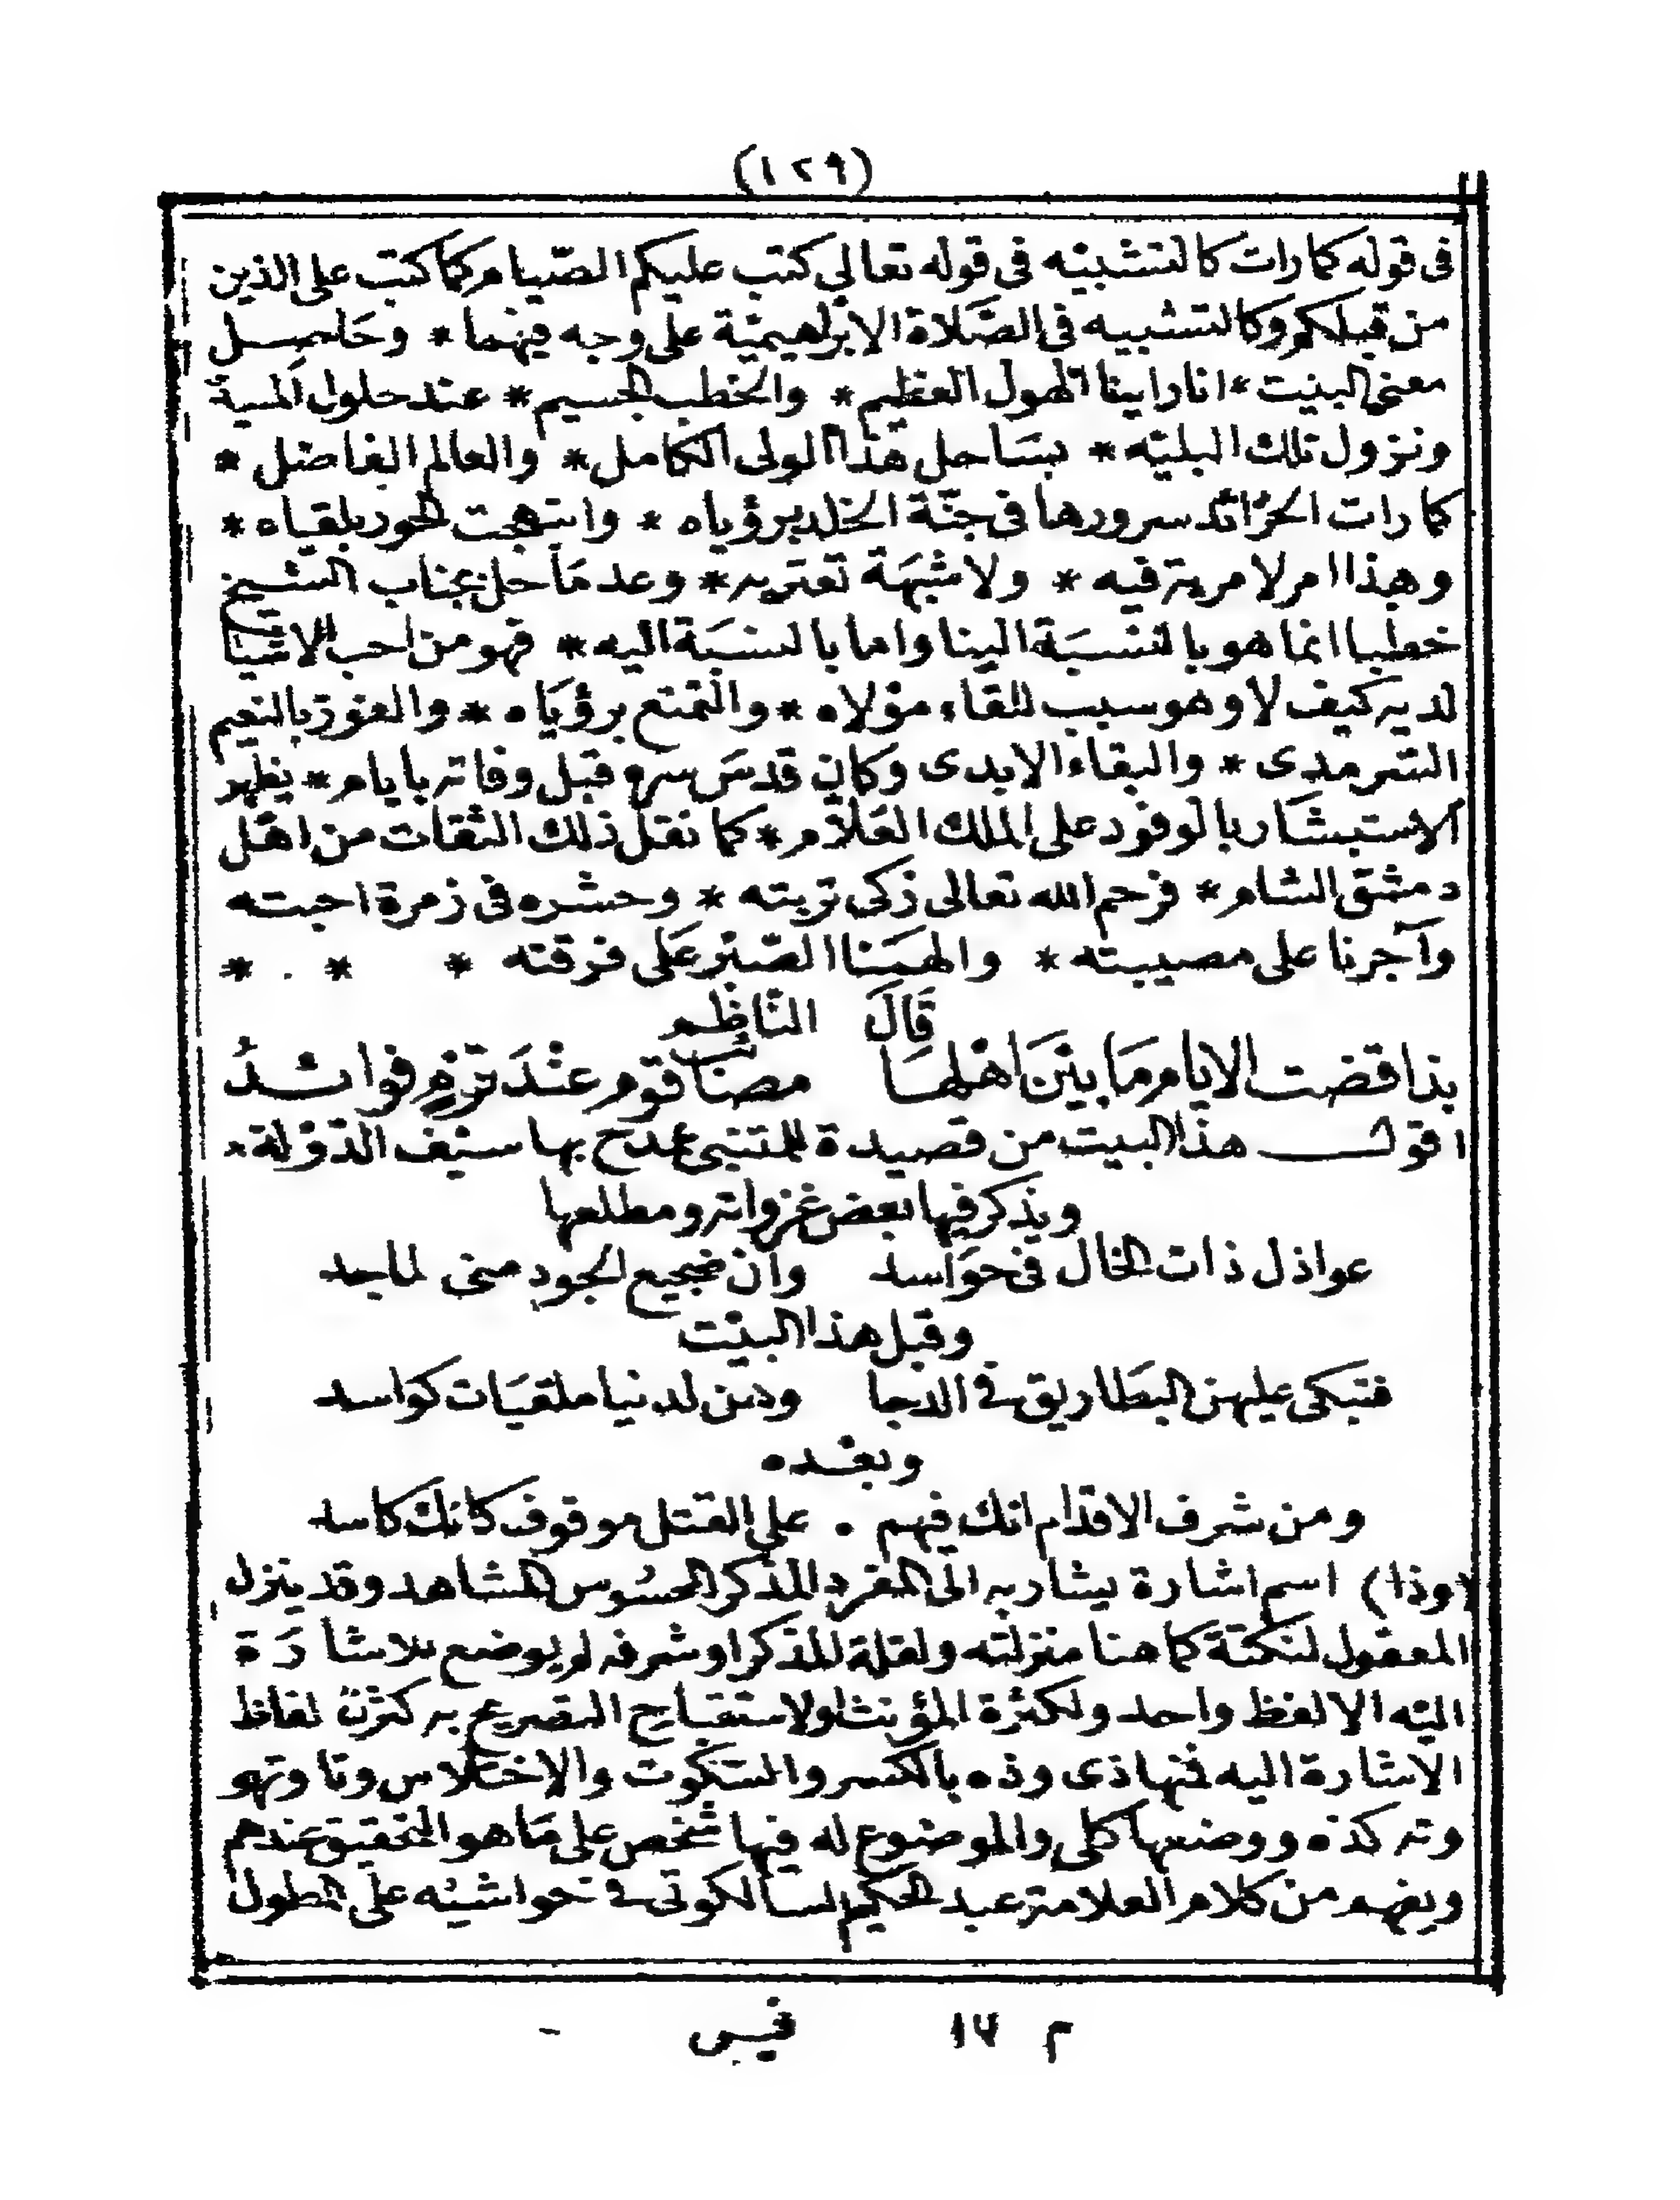 (١٢٩)
فى قوله كما رات كالتشبيْه فى قوله تعالى كتب عليكم الصّيام كما كتب على الذين
من قبلكم وكالتشبيه فى الصَّلاة الابرْاهيميْة على وجه فيهْما * وحَاصِــل
معنى البيْت * انا راينا الهول العظيم * والخطب الجسيم * عند حلول المنية
ونزول تلك البليّه * بسَاحل هذا الولى الكامل * والعالم الفاضل *
كما رات الخرّائد سرورها فى جنّة الخلد برؤياه * وابتهجت الحور بلقياه *
وهذا امر لا مرية فيه * ولا شبهَة تعتريه * وعد مَا حل بجناب الشيخ
خطبا انما هو بالنسْبَة الينا واما بالنسبَة اليه * فهو من احب الاشيا
لديه كيف لا وهو سبب للقاء موْلاه * والتمتع برؤيَاه * والفوز بالنعيم
السّرمدى * والبقاء الابدى وكان قدسَ سره قبل وفاته بايام * يظهر
الاستبشَار بالوفود على الملك العَلاّم * كما نقل ذلك الثقات من اهْل
دمشق الشام * فرحم الله تعالى زكى تربته * وحشره فى زمرة احبته
وآجرنا على مصيبته * والهمَنا الصّبْر عَلى فرقته * * . *
قَالَ النّاظِـم
بذا قضت الايام مَا بيْنَ اهْلهَا مصَائب قوم عنْدَ قوْمٍ فوائــدُ
اقولـــ هذا البيت من قصيدة للمتنبى يمدح بها سيْف الدّوْلة *
ويذكر فيها بعض غزواته ومطلعها
عواذل ذات الخال فىّ حوَاسد وان ضجيع الجود منى لماجد
وقبل هذا البيْت
فتبكى عليهن البطَاريق فى الدجا وهن لدنيا ملقيَات كواسد
وبعْـده
ومن شرف الاقدام انك فيهم . على القتل موقوف كانك كاسد
(وذا) اسم اشارة يشار به الى المفرد المذكر المحسُوس المشاهد وقد ينزل
المعقول لنكتة كما هنا منزلته ولقلة المذكر او شرفه لم يوضع للاشا رَة
اليْه الا لفظ واحد ولكثرة المؤنث او لاستقباح التصريح به كثرت الفاظ
الاشارة اليه فمنها ذى وذه بالكسر والسّكوت والاختلاس وتا وتهو
وته كذه ووضعها كلى والموضوع له فيها شخص على مَا هو التحقيق عندهم
ويفهم من كلام العلامة عبد الحكيم السالكوتى فى حواشيْه على المطول
م ١٧ فيس